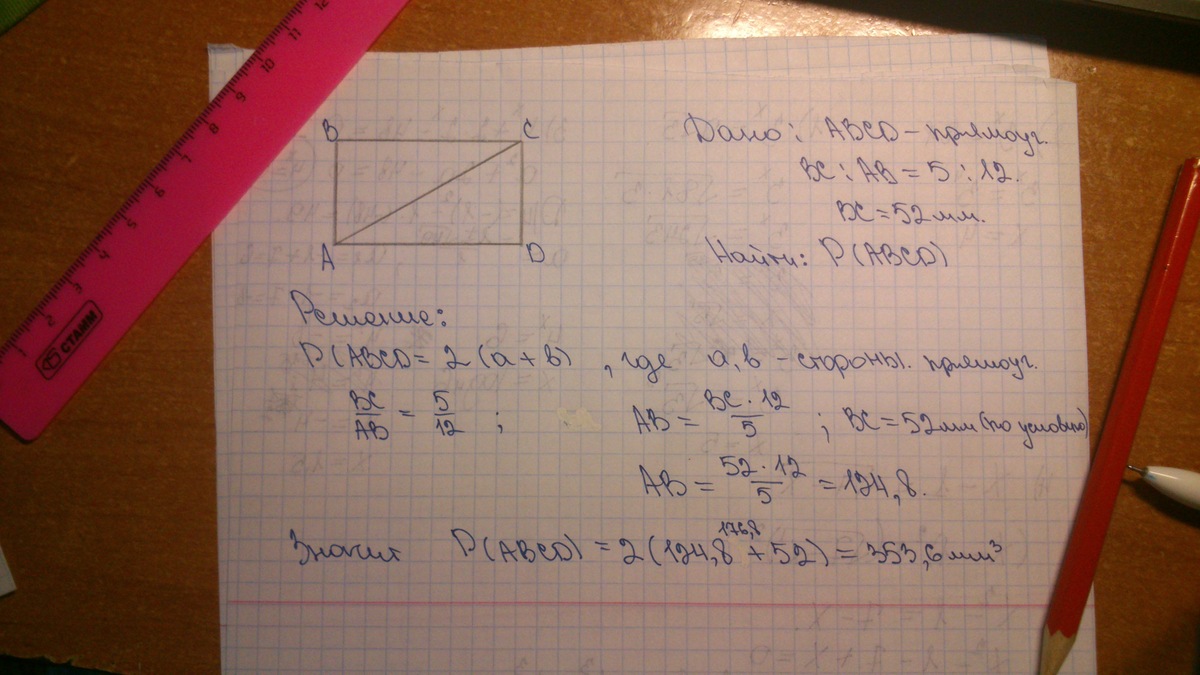 B C
A D
Дано: ABCD – прямоуг.
BC : AB = 5 : 12.
BC = 52 мм.
Найти: P(ABCD)
Решение:
P(ABCD = 2(a+b) , где a, b – стороны. прямоуг.
BC/AB = 5/12 ; AB = BC · 12/5 ; BC = 52 мм (по условию)
AB = 52 · 12/5 = 124,8.
176,8
Значит P(ABCD) = 2(124,8 + 52) = 353,6 мм³
1 2 3 4 5 6 7 8 9 10 11 12
СТАММ